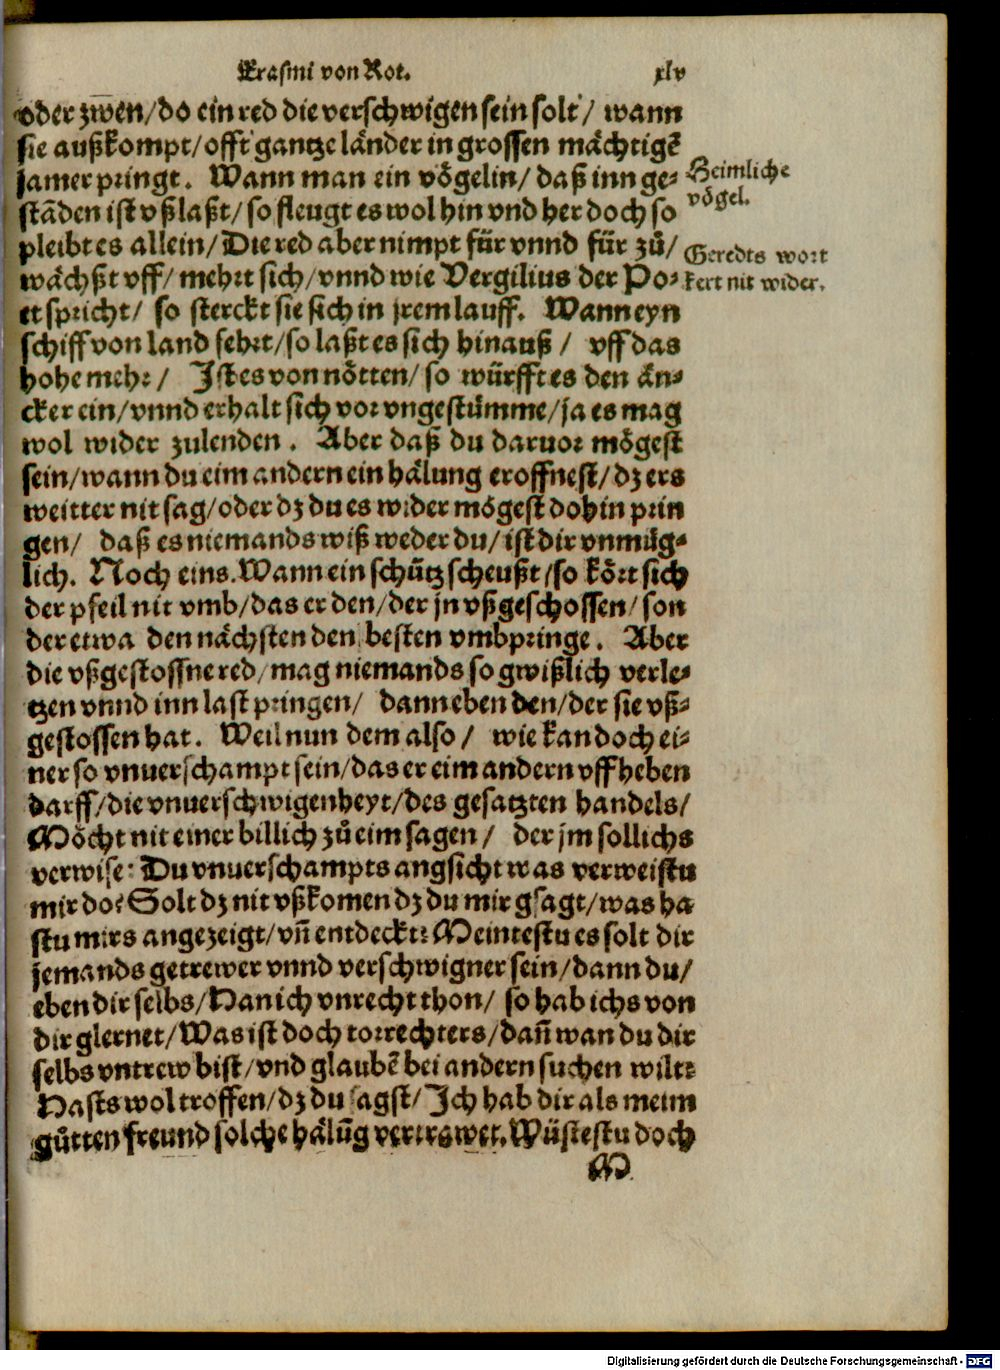 Erasmi von Rot. xlv
oder zwen/do ein red die verschwigen sein solt/ wann
sie außkompt/offt gantze länder in grossen mächtigẽ
jamer pringt. Wann man ein vögelin/ daß inn ge-
stãden ist vßlaßt/so fleugt es wol hin vnd her doch so
Heimliche
vögel.
pleibt es allein/Die red aber nimpt für vnnd für zů/
wächßt vff/mehrt sich/vnnd wie Vergilius der Po-
Geredts wort
kert nit wider.
et spricht/ so sterckt sie sich in jrem lauff. Wann eyn
schiff von land fehrt/so laßt es sich hinauß/ vff das
hohe mehr/ Ist es von nötten/so würfft es den än-
cker ein/vnnd erhalt sich vor vngestümme/ja es mag
wol wider zulenden. Aber daß du daruor mögest
sein/wann du eim andern ein hälung eroffnest/dz ers
weitter nit sag/oder dz du es wider mögest dohin prin
gen/ daß es niemands wiß weder du/ist dir vnmüg-
lich. Noch eins. Wann ein schütz scheußt/so kört sich
der pfeil nit vmb/das er den/der jn vßgeschossen/son
der etwa den nächsten den besten vmbpringe. Aber
die vßgestossne red/mag niemands so gwißlich verle-
tzen vnnd inn last pringen/ dann eben den/der sie vß-
gestossen hat. Weil nun dem also/ wie kan doch ei-
ner so vnuerschampt sein/das er eim andern vffheben
darff/die vnuerschwigenheyt/des gesatzten handels/
Möcht nit einer billich zů eim sagen/ der jm sollichs
verwise: Du vnuerschampts angsicht was verweistu
mir do? Solt dz nit vßkomen dz du mir gsagt/was ha
stu mirs angezeigt/vñ entdeckt? Meintestu es solt dir
jemands getrewer vnnd verschwigner sein/dann du/
eben dir selbs/Han ich vnrecht thon/ so hab ichs von
dir glernet/Was ist doch torrechters/dañ wan du dir
selbs vntrew bist/vnd glaubẽ bei andern suchen wilt?
Hasts wol troffen/dz du sagst/Ich hab dir als meim
gůtten freund solche hälũg vertrawet. Wüstestu doch
M
Digitalisierung gefördert durch die Deutsche Forschungsgemeinschaft - DFG